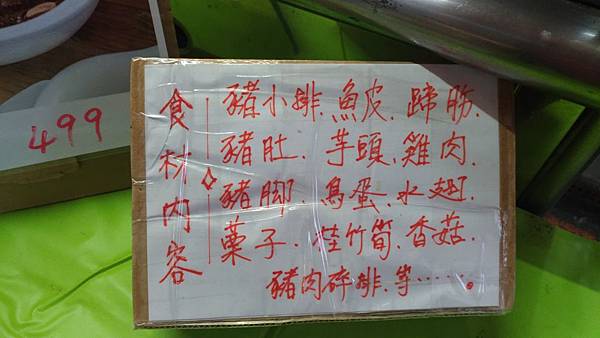 499
食材內容
豬小排.魚皮.蹄筋.
豬肚.芋頭.雞肉.
豬腳.鳥蛋.水翅.
栗子.桂竹筍.香菇.
豬肉碎排.等······。